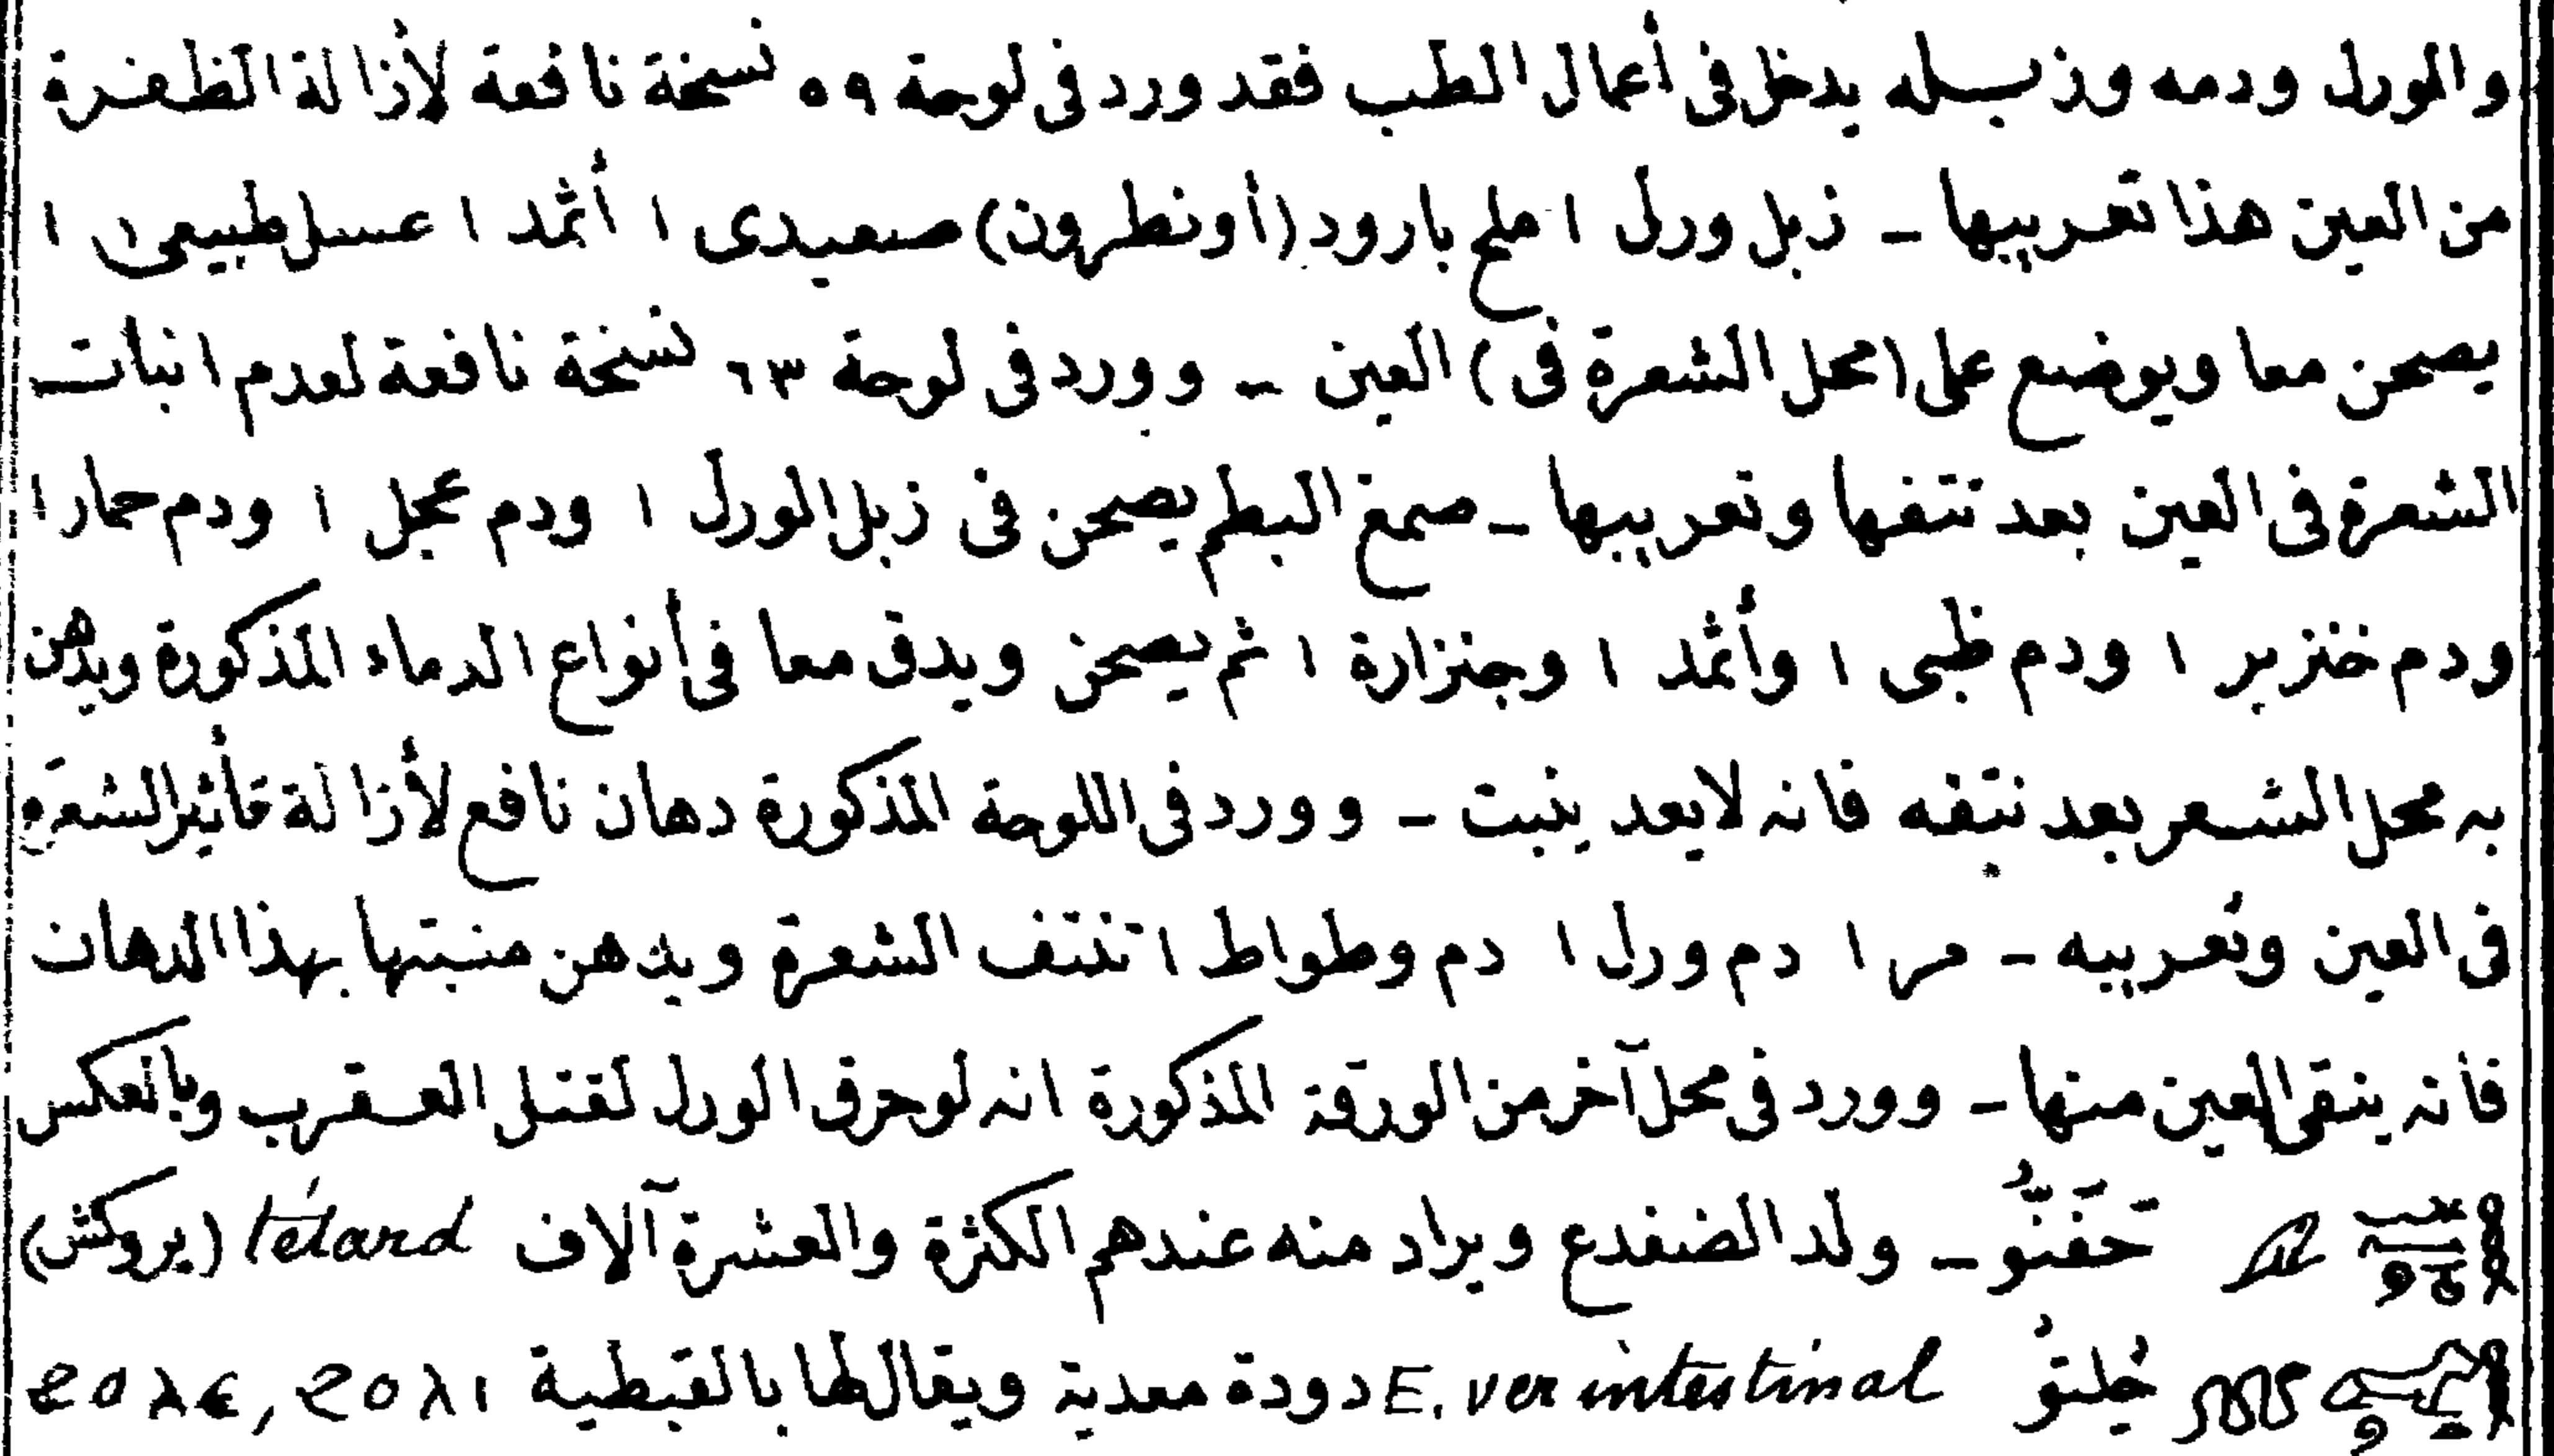 والورل ودمه وزبله يدخل فى أعمال الطب فقد ورد فى لوحة ٥٩ نسخة نافعة لأزالة الظفرة
من العين هذا تعريبها - زبل ورل ١ ملح بارود (أو نطرون) صعيدى ١ أثمد ١ عسل طبيعى ١
يصحن معا ويوضع على (محل الشعرة فى) العين - وورد فى لوحة ٦٣ نسخة نافعة لعدم انبات
الشعرة فى العين بعد نتفها وتعريبها - صمغ البطم يصحن فى زبل الورل ١ ودم عجل ١ ودم حمار ١
ودم خنزير ١ ودم ظبى ١ وأثمد ١ وجنزارة ١ ثم يصحن ويدق معا فى أنواع الدماء المذكورة ويدهن
به محل الشعر بعد نتفه فانه لايعد ينبت - وورد فى اللوحة المذكورة دهان نافع لأزالة تأثير الشعرة
فى العين وتعريبه - مر ١ دم ورل ١ دم وطواط ١ تنتف الشعرة ويدهن منبتها بهذا الدهان
فأنه ينقى العين منها - وورد فى محل آخر من الورقة المذكورة انه لو حرق الورل لقتل العقرب وبالعكس
حَفَنّو - ولد الضفدع ويراد منه عندهم الكثرة والعشرة آلاف tétard (بروكش)
E. ver intestinal دودة معدية ويقال لها بالقبطية ϩⲟⲗⲓ, ϩⲟⲗⲉ